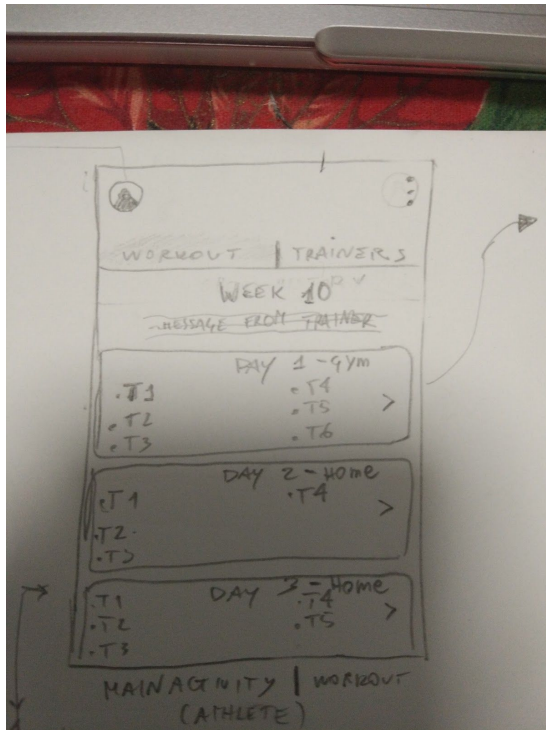 WORKOUT | TRAINERS
WEEK 10
MESSAGE FROM TRAINER
DAY 1 - Gym
.T1 .T4
.T2 .T5
.T3 .T6
>
DAY 2 - Home
.T1 .T4
>
.T2
.T3
DAY 3 - Home
.T1 .T4
.T2 .T5
>
.T3
MAINACTIVITY | WORKOUT
(ATHLETE)